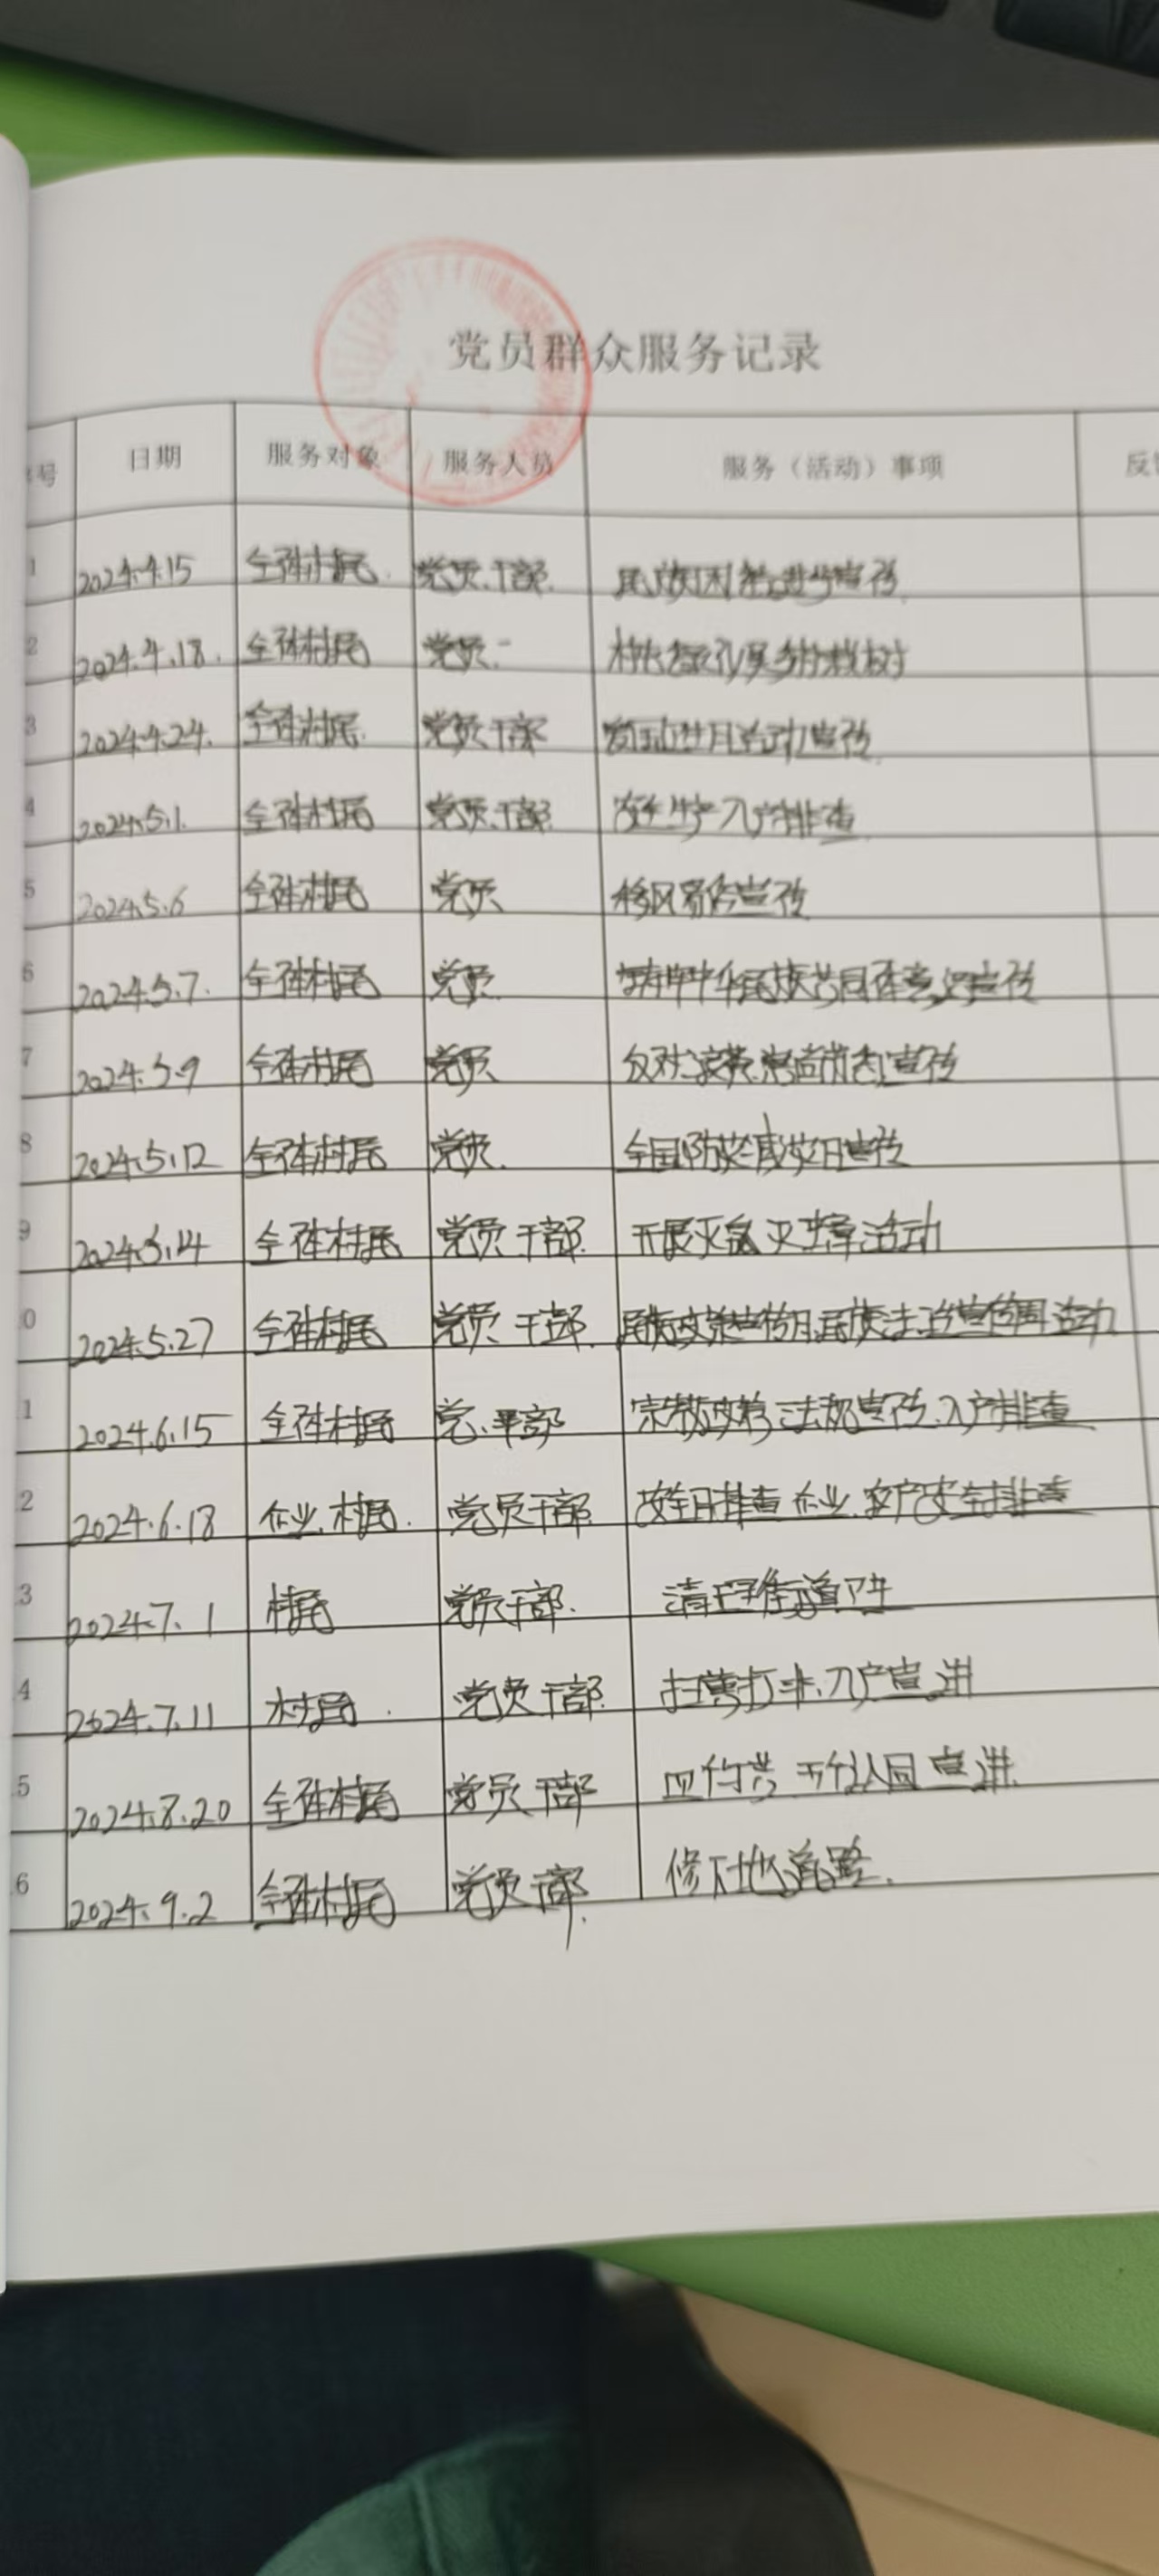 党员群众服务记录
号 日期 服务对象 服务人员 服务（活动）事项 反
1 2024.4.15 全体村民. 党员.干部. 民族团结进步宣传
2 2024.4.18. 全体村民 党员. 栽树
3 2024.4.24. 全体村民. 党员干部 爱国卫生月活动宣传
4 2024.5.1. 全体村民 党员.干部. 安全生产入户排查
5 2024.5.6 全体村民 党员 移风易俗宣传
6 2024.5.7. 全体村民 党员. 铸牢中华民族共同体意识宣传
7 2024.5.9 全体村民 党员 反对浪费.宣传
8 2024.5.12 全体村民 党员. 全国防灾减灾日宣传
9 2024.5.14 全体村民 党员干部. 开展灭鼠灭蟑活动
0 2024.5.27 全体村民 党员干部. 民族政策宣传月.民族法治宣传周活动
1 2024.6.15 全体村民 党.干部 宗教政策法规宣传.入户排查
2 2024.6.18 企业.村民. 党员干部. 安全月排查企业.农户安全排查
3 2024.7.1 村民 党员干部. 清理街道卫生
4 2024.7.11 村民. 党员干部. 扫黄打非.入户宣讲
5 2024.8.20 全体村民 党员干部 五个认同宣讲.
6 2024.9.2 全体村民 党员干部. 修下地道路.